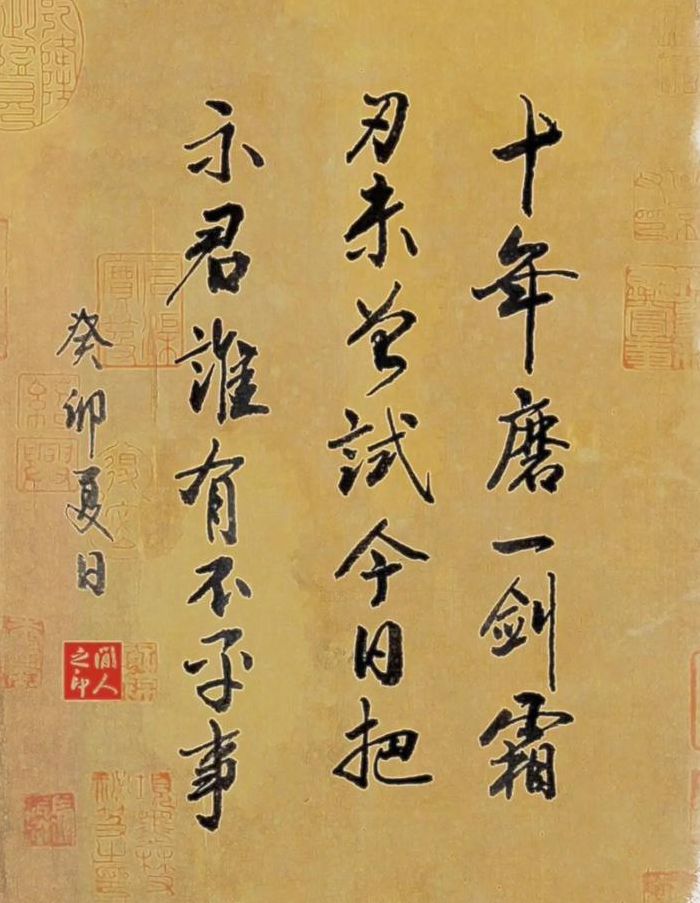 十年磨一剑霜
刃未曾試今日把
示君誰有不平事
癸卯夏日
閒人之印